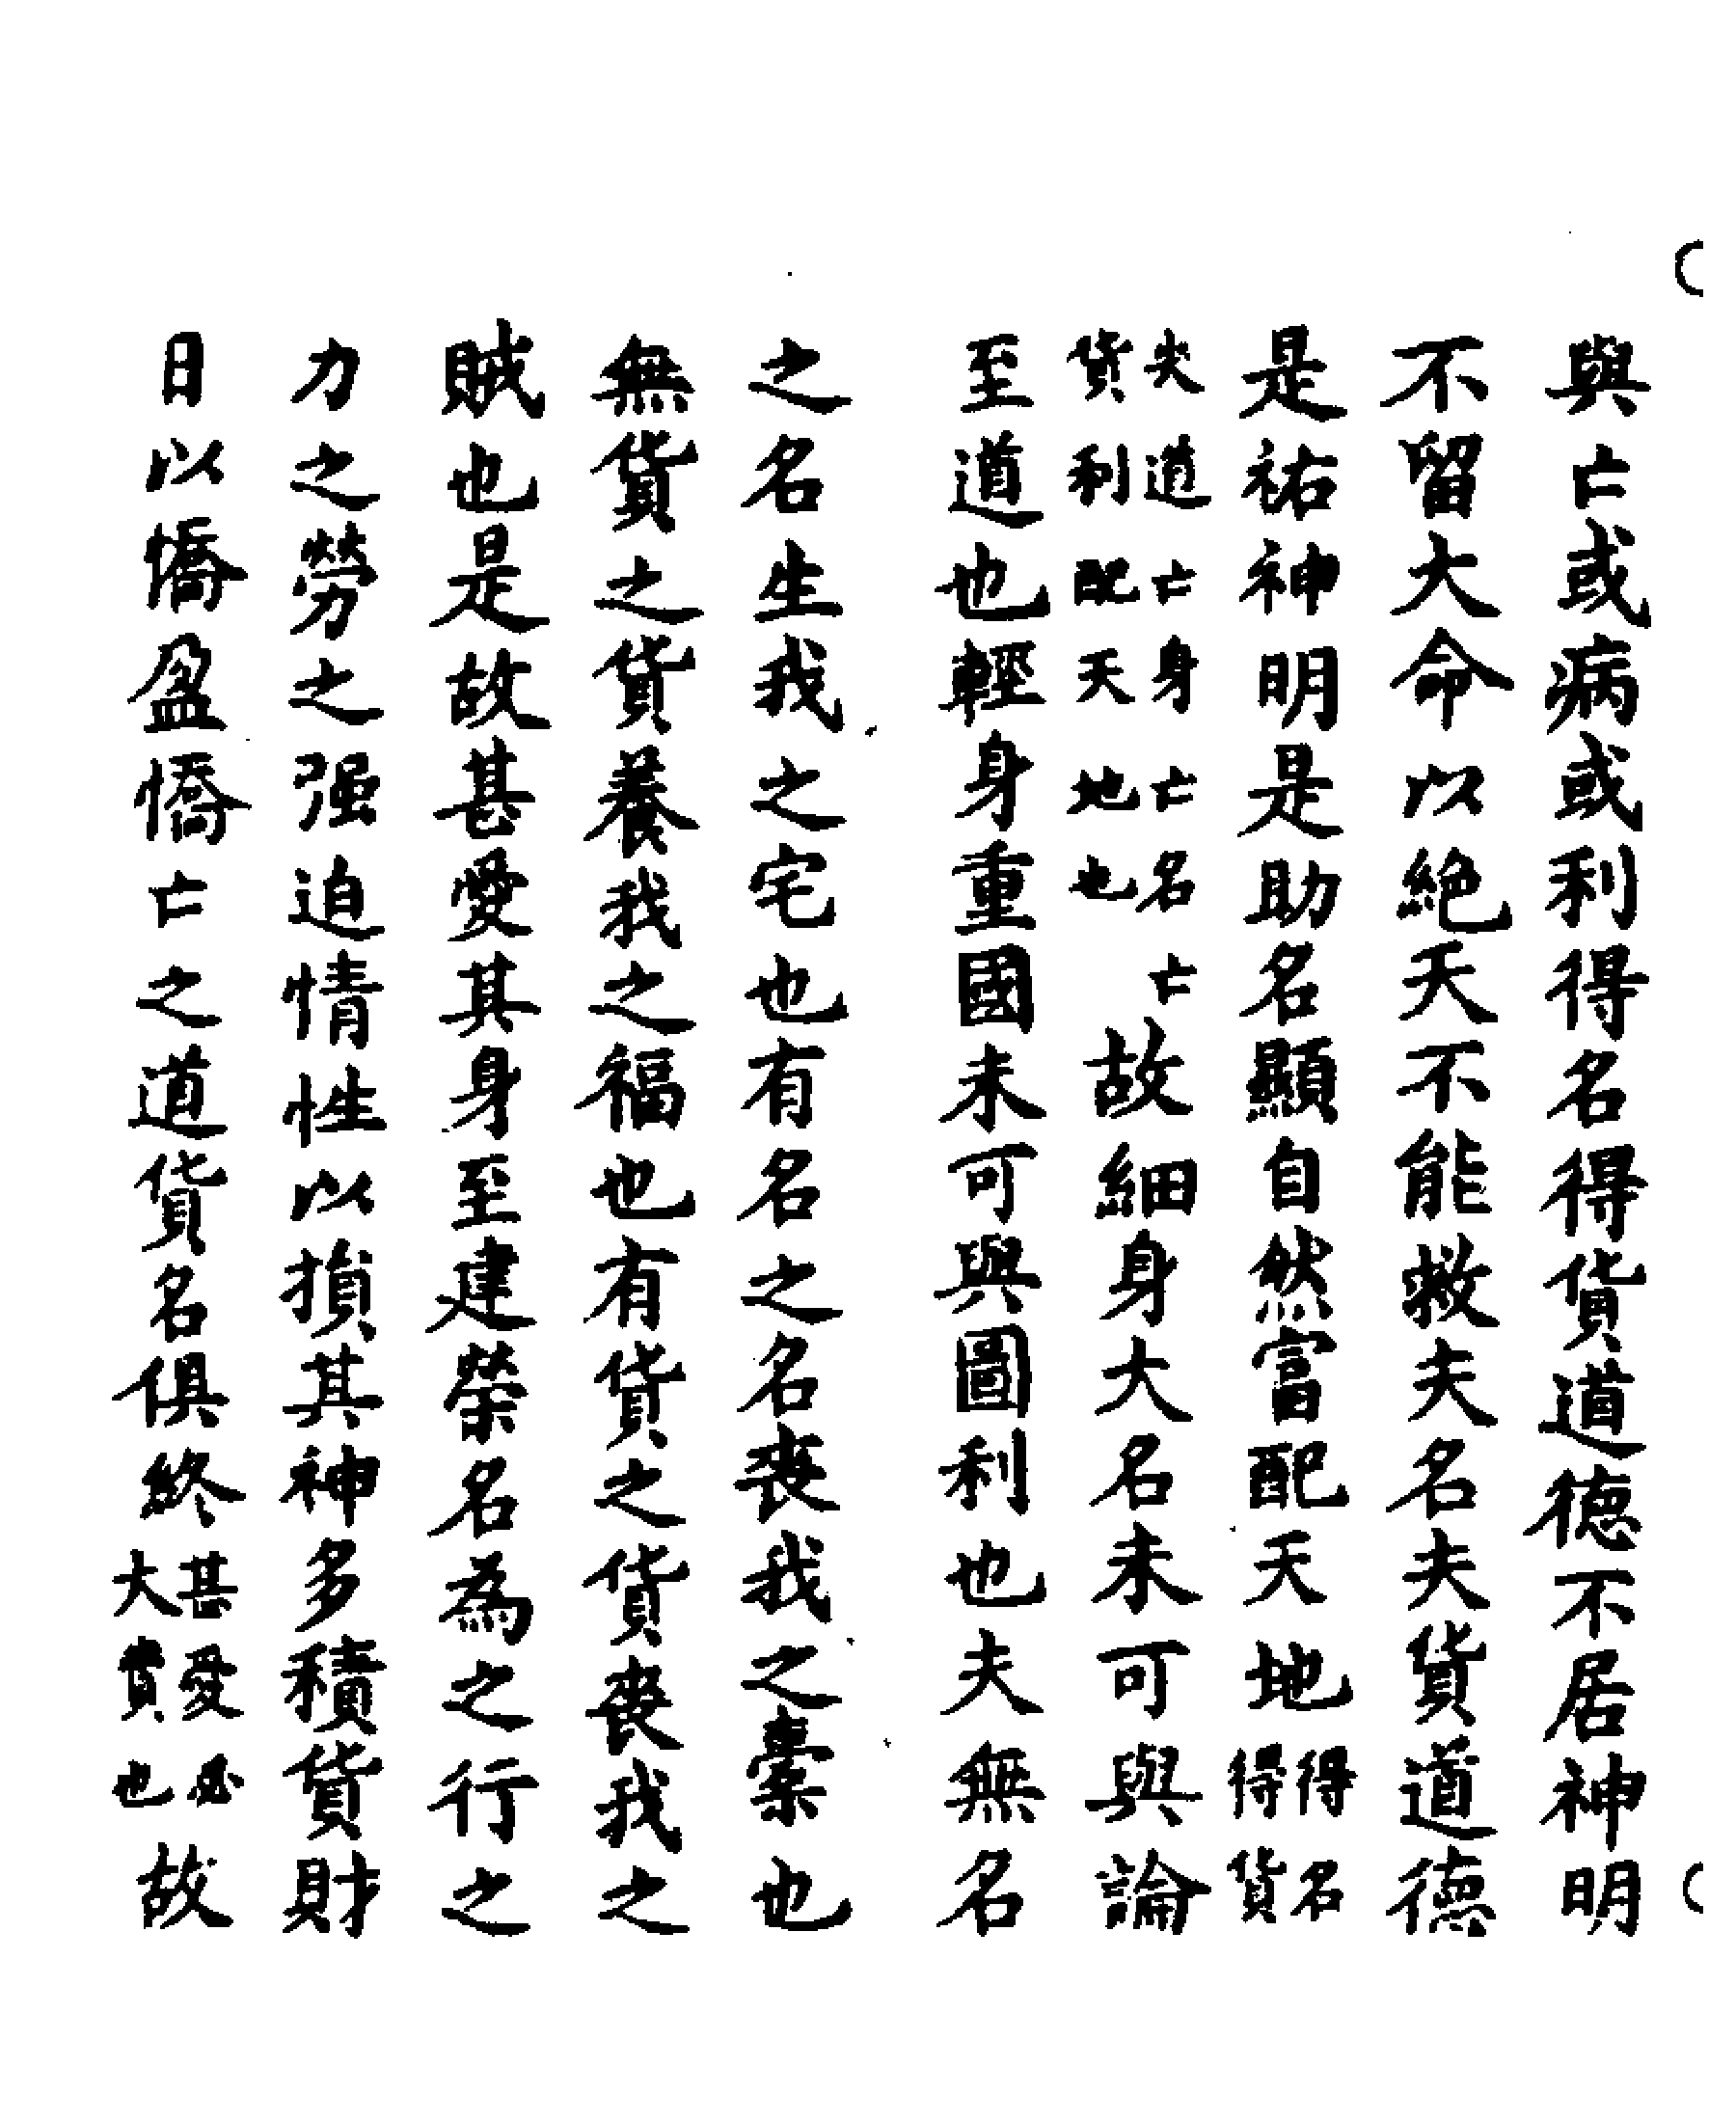 與亡或病或利得名得貨道德不居神明
不留大命以絕天不能救夫名夫貨道德
是祐神明是助名顯自然富配天地得名得貨
失道亡身亡名亡貨利配天地也故細身大名未可與論
至道也輕身重國未可與圖利也夫無名
之名生我之宅也有名之名喪我之橐也
無貨之貨養我之福也有貨之貨喪我之
賊也是故甚愛其身至建榮名為之行之
力之勞之强迫情性以損其神多積貨財
日以憍盈憍亡之道貨名俱終甚愛必大費也故